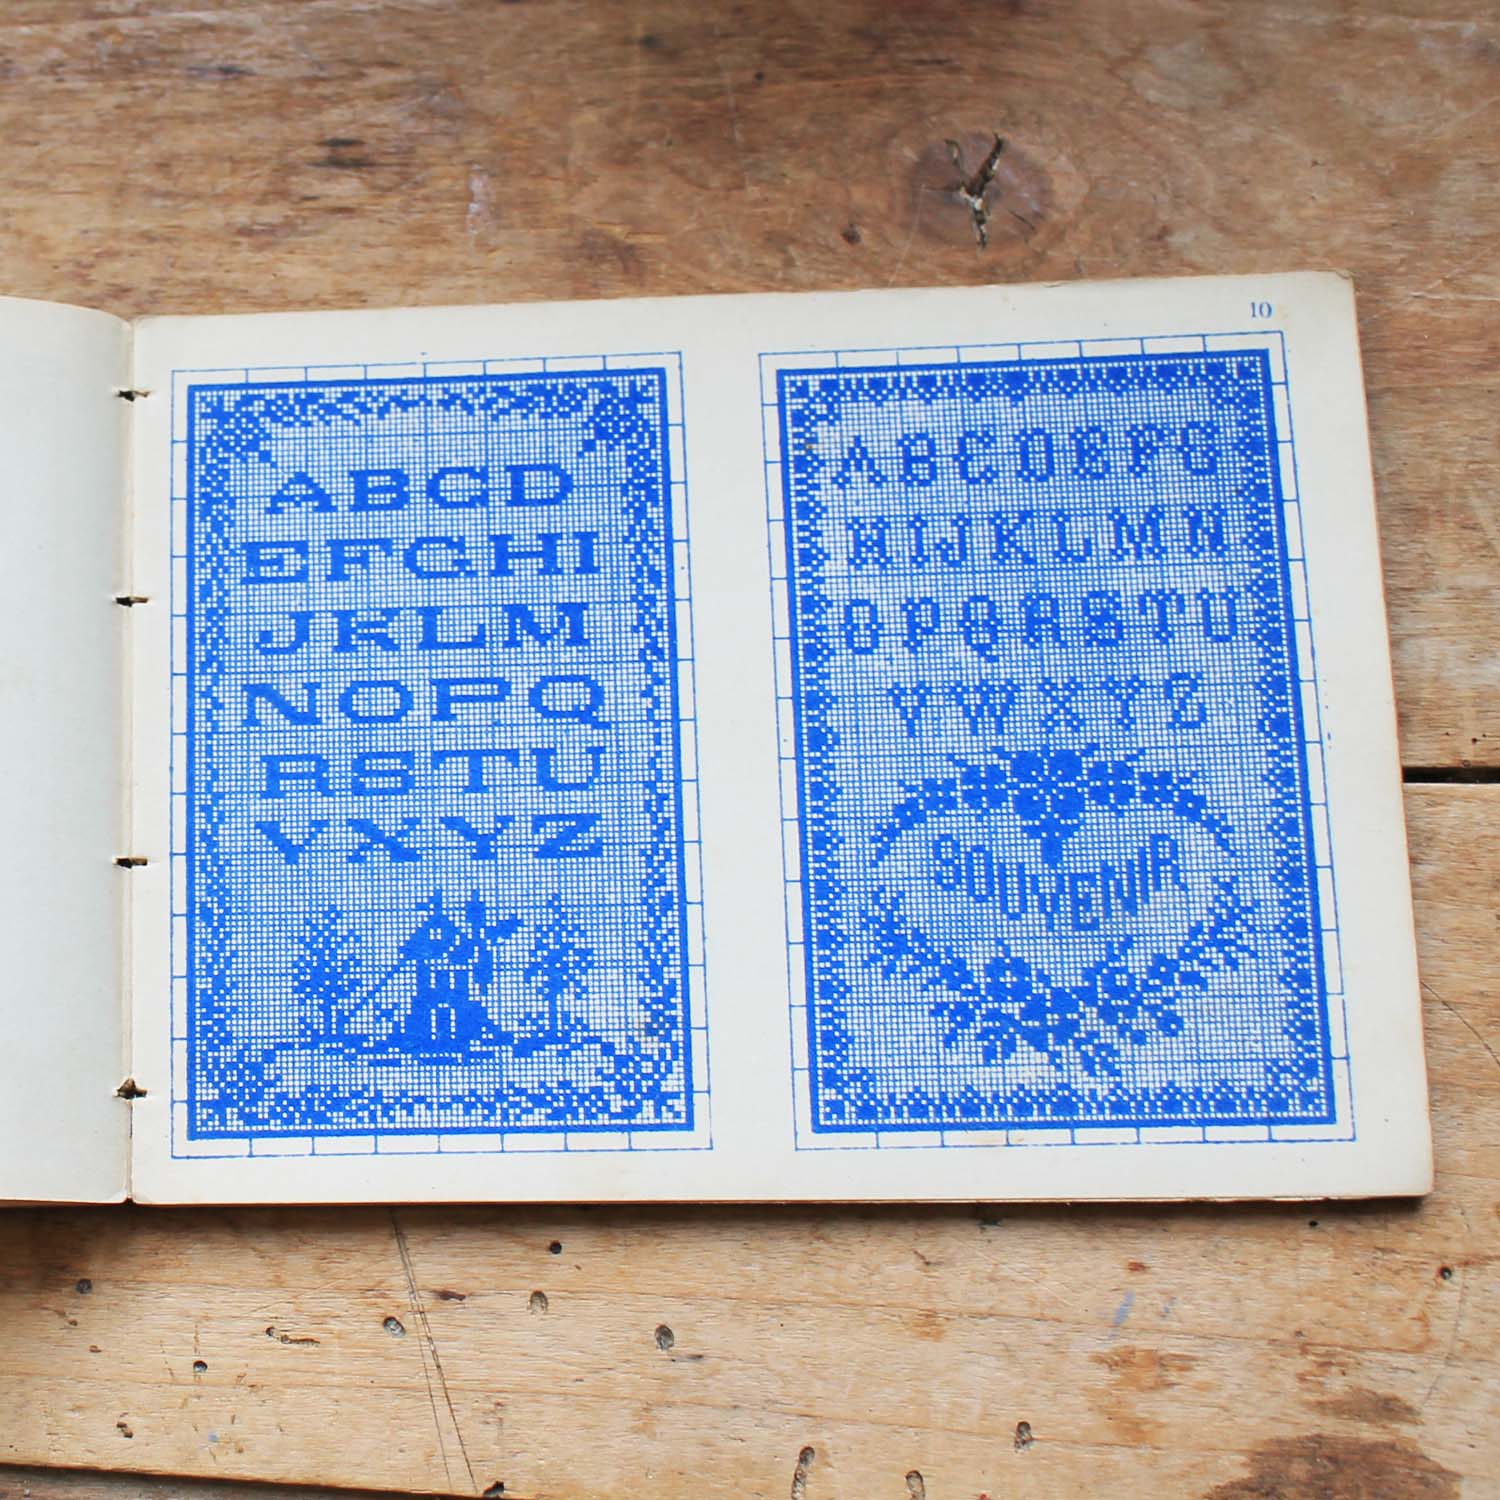 10
ABCD
EFGHI
JKLM
NOPQ
RSTU
VXYZ
ABCDEFG
HIJKLMN
OPQRSTU
VWXYZ
SOUVENIR